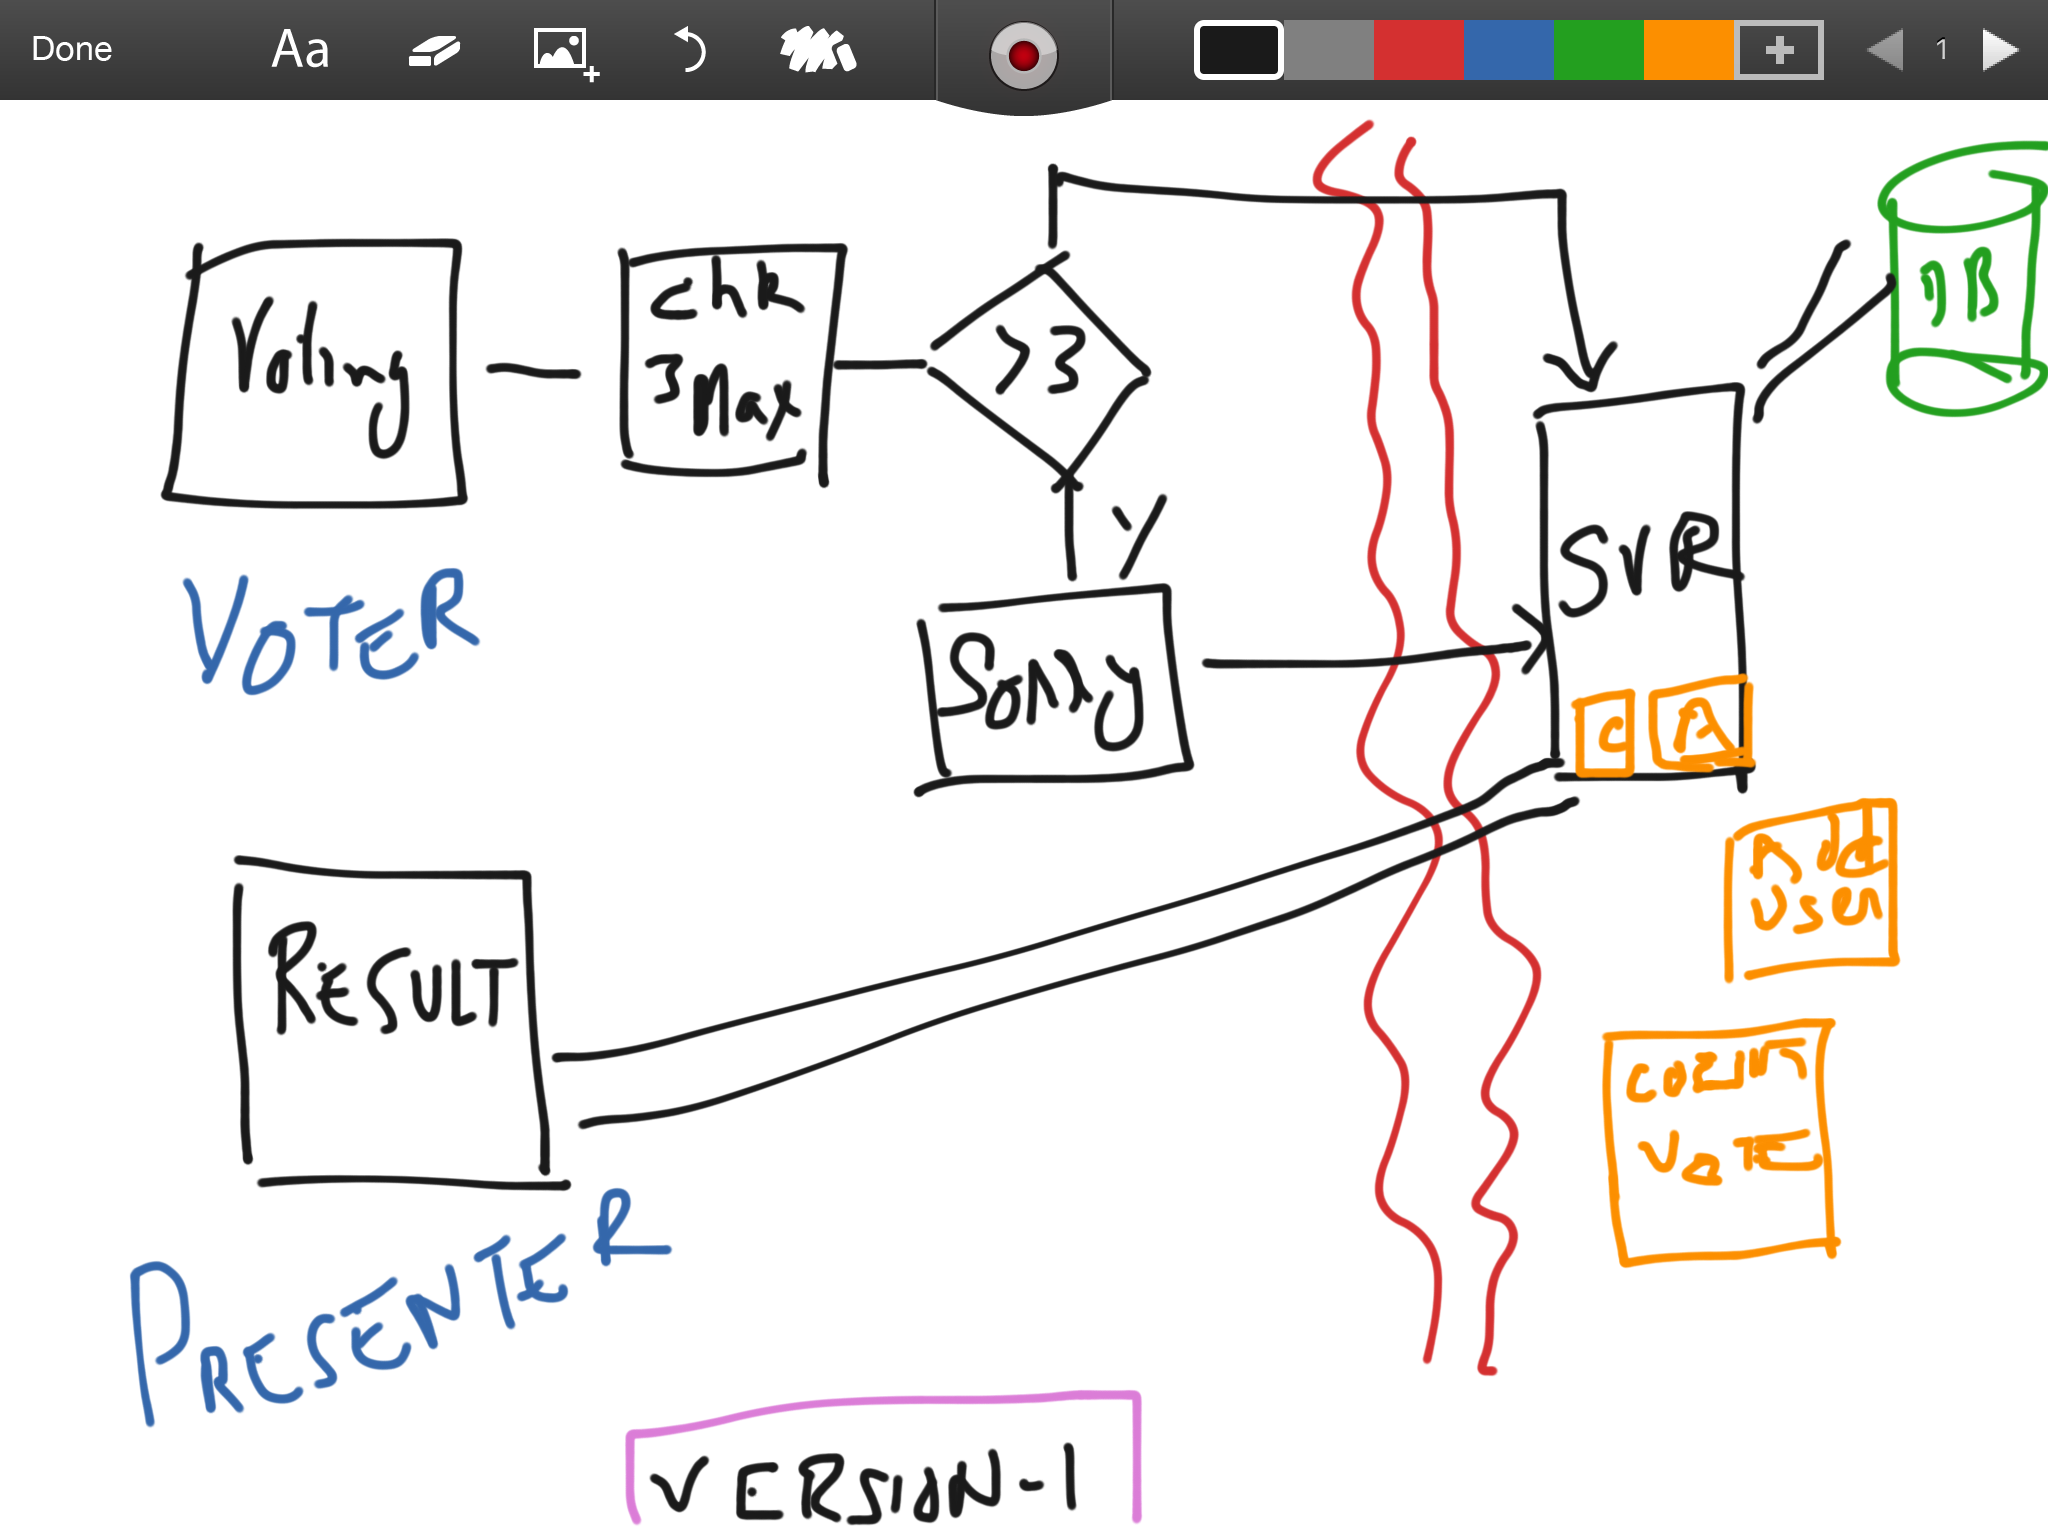 Done Aa 1
Voting
chk
3 Max
>3
Y
Sorry
SVR
DB
C A
VOTER
Add
User
COUNT
VOTE
RESULT
PRESENTER
VERSION-1